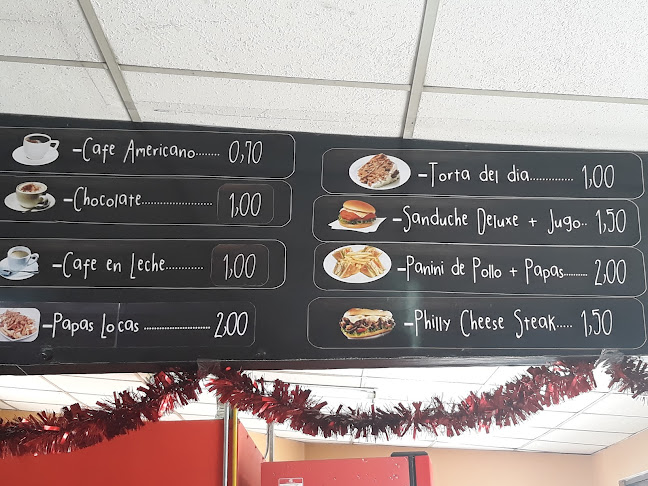 -Cafe Americano........ 0,70
-Chocolate..................... 1,00
-Cafe en Leche........... 1,00
-Papas Locas ........................ 2,00
-Torta del dia.............. 1,00
-Sanduche Deluxe + Jugo.. 1,50
-Panini de Pollo + Papas......... 2,00
-Philly Cheese Steak..... 1,50